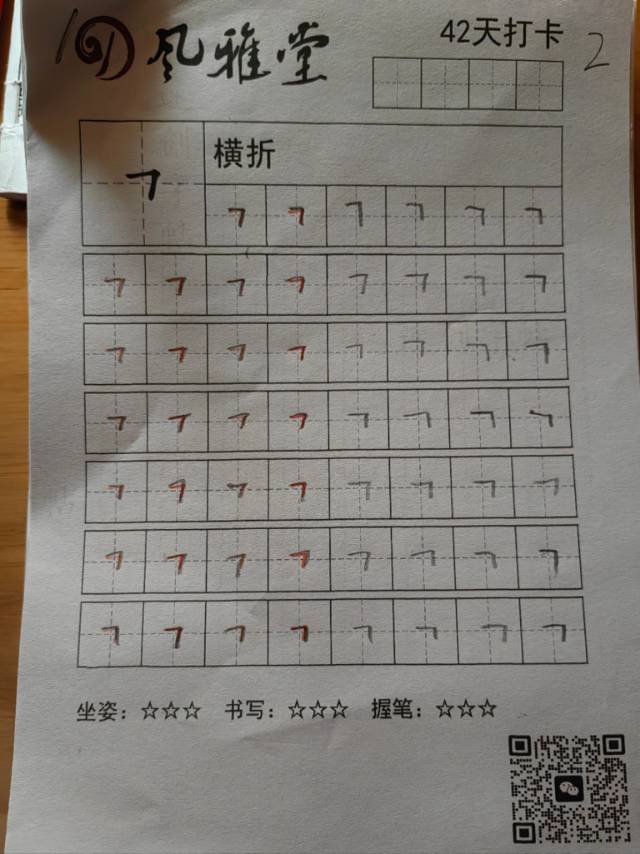 风雅堂
42天打卡
2
横折
坐姿：☆☆☆ 书写：☆☆☆ 握笔：☆☆☆